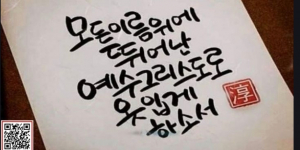 모든이름위에
뛰어난
예수그리스도로
옷입게
하소서
淳